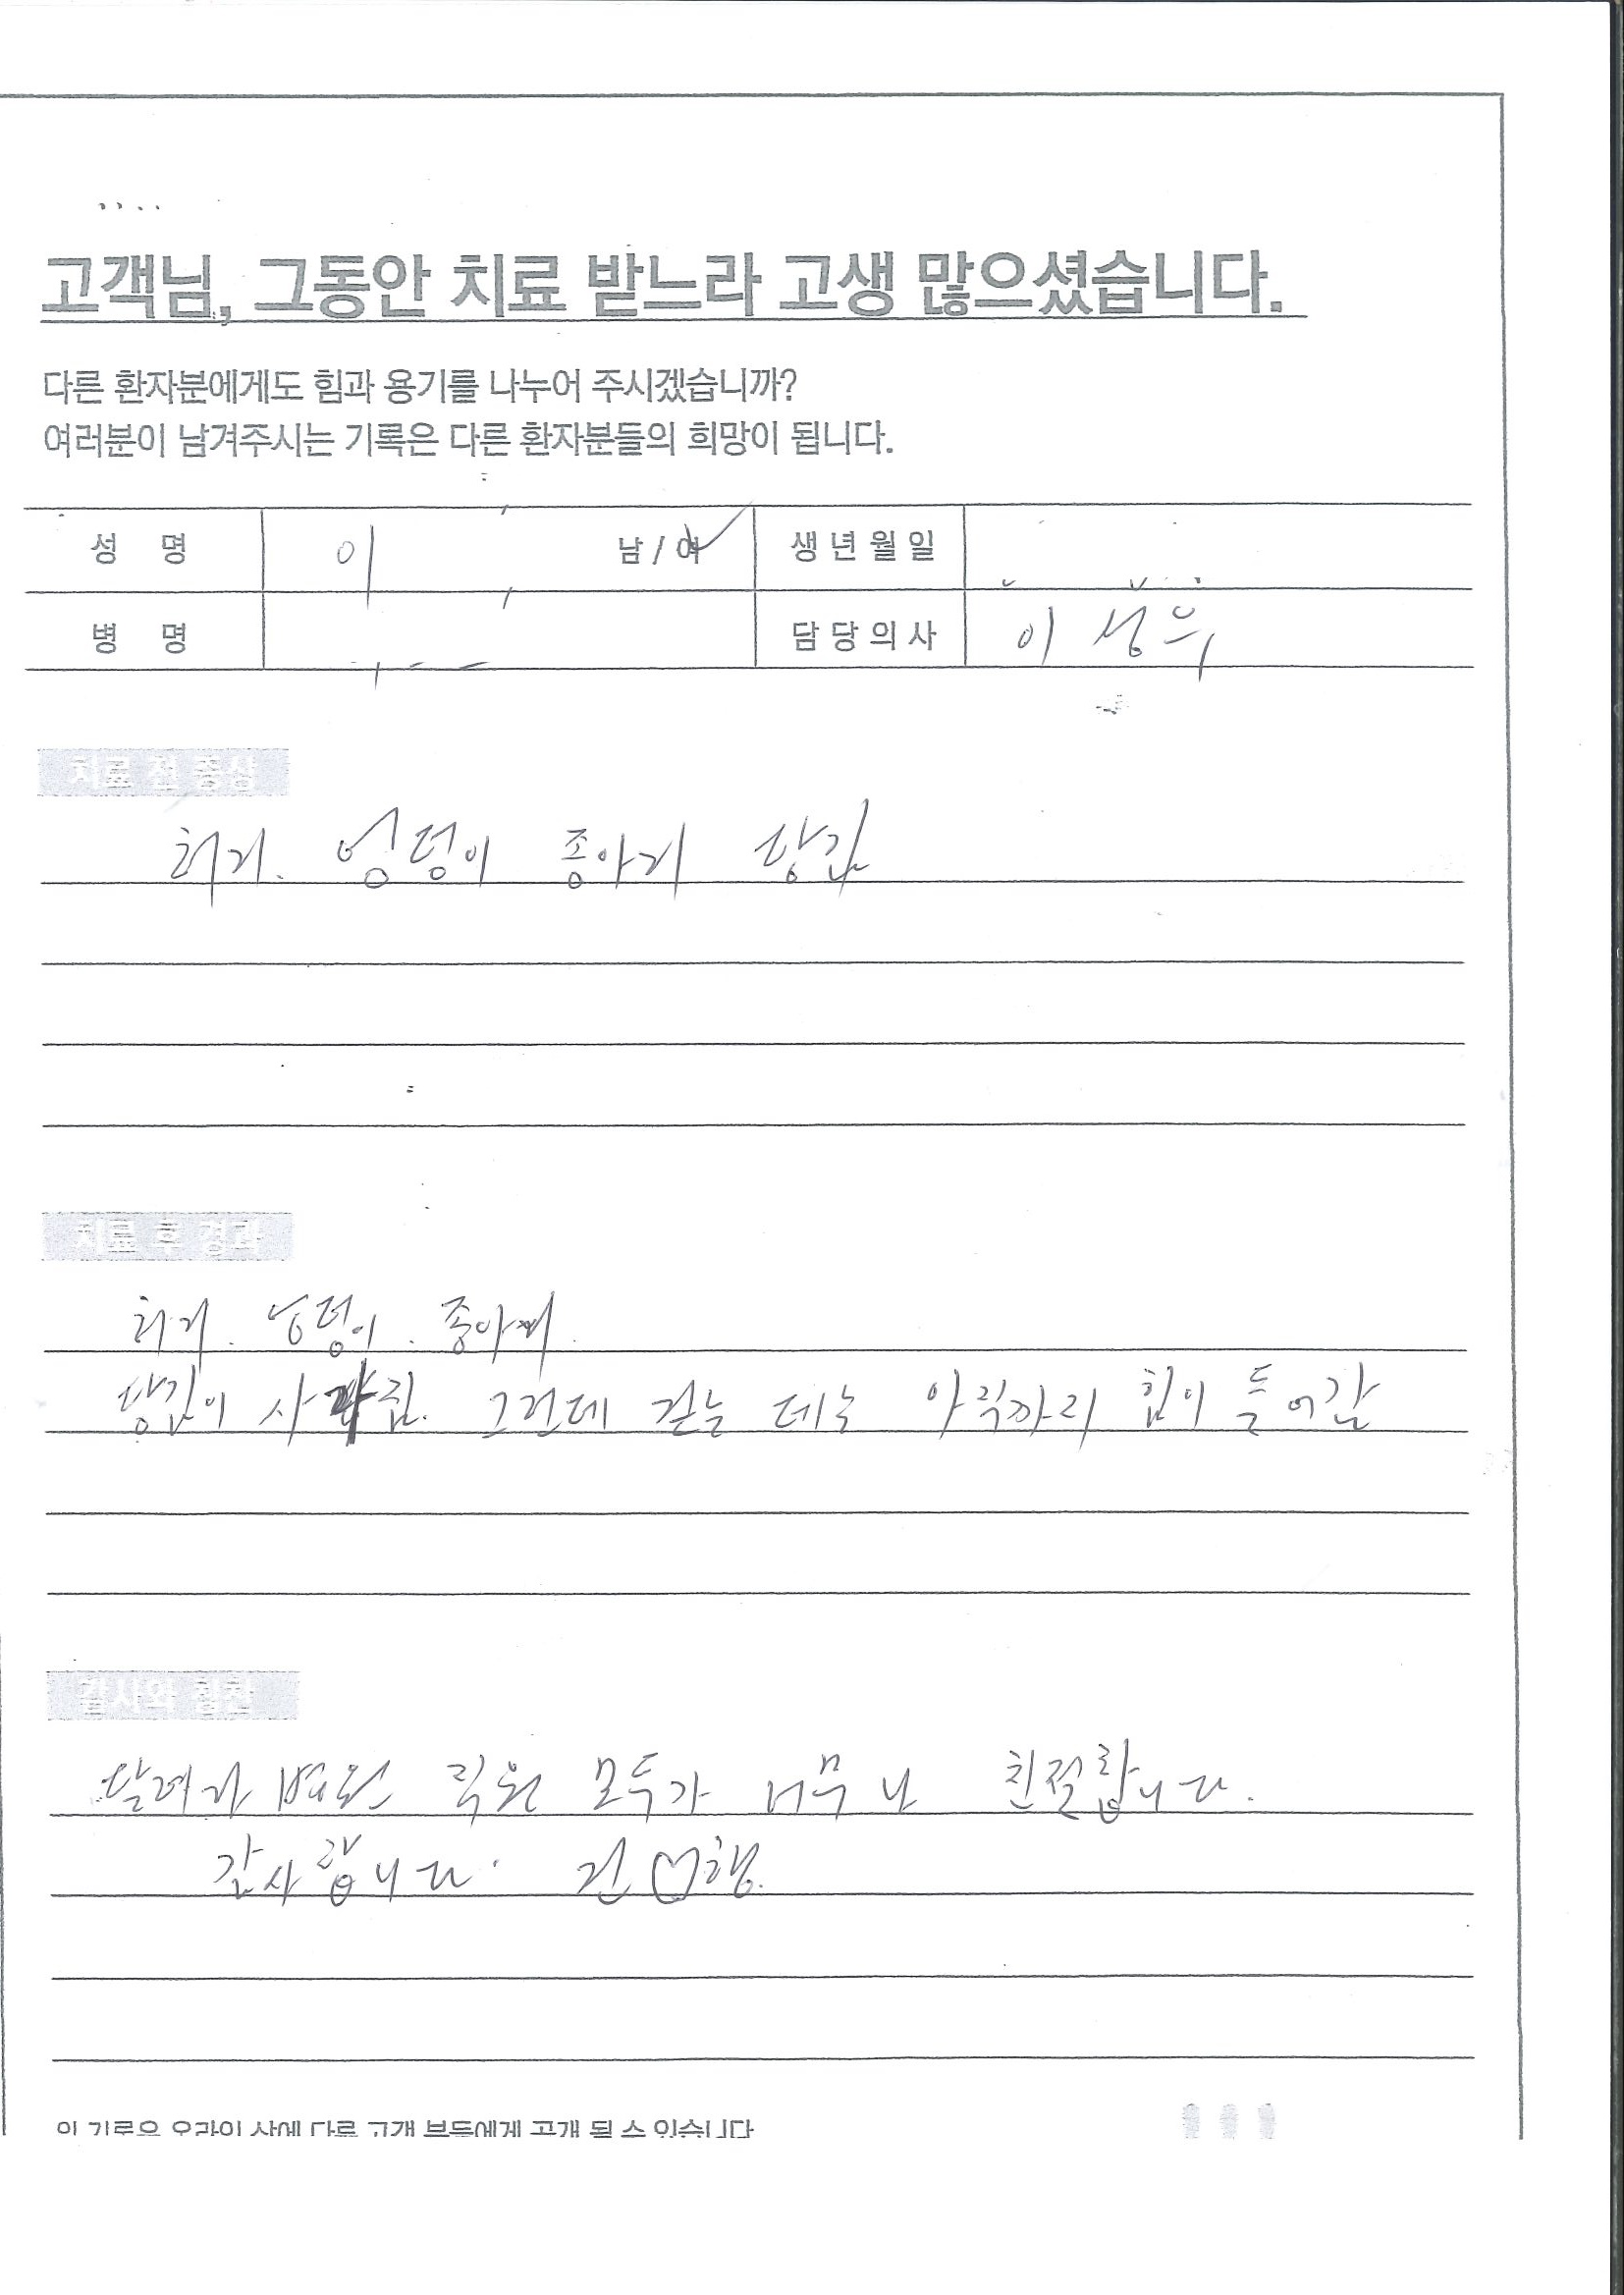 고객님, 그동안 치료 받느라 고생 많으셨습니다.
다른 환자분에게도 힘과 용기를 나누어 주시겠습니까?
여러분이 남겨주시는 기록은 다른 환자분들의 희망이 됩니다.
성 명 이 남/여 생년월일
병 명 담당의사 이성우
치료 전 증상
허리. 엉덩이 종아리 당김
치료 후 경과
허리. 엉덩이. 종아리.
당김이 사라짐. 그런데 걷는 데는 아직까지 힘이 들어감
감사와 칭찬
달려라병원 직원 모두가 너무나 친절합니다.
감사합니다. 건♡행.
이 기록은 온라인 상에 다른 고객 분들에게 공개 될 수 있습니다